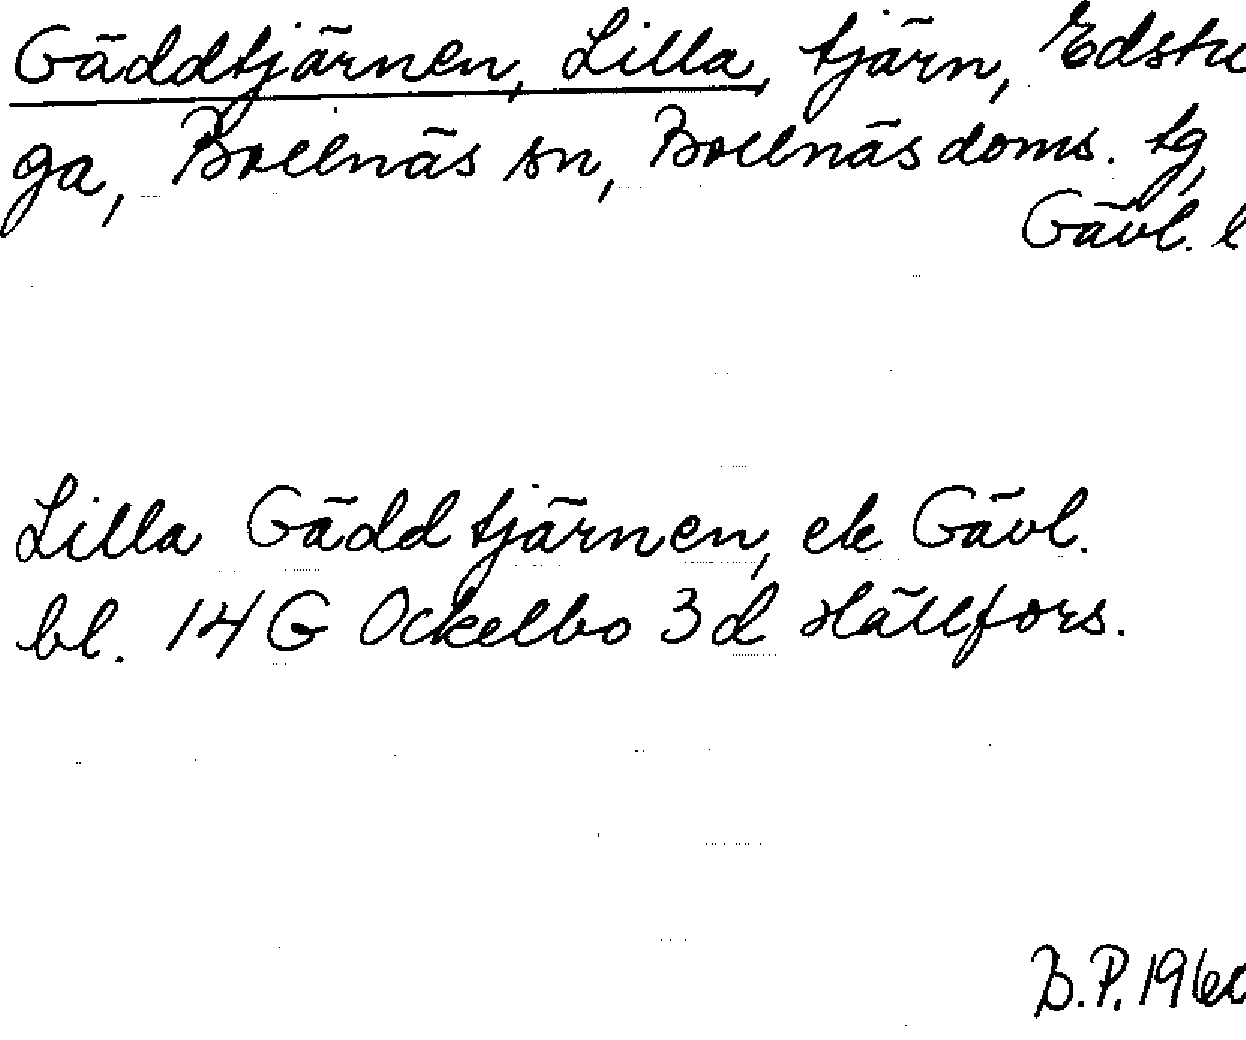 Gäddtjärnen, Lilla, tjärn, Edstu
ga, Bollnäs sn, Bollnäs doms. tg,
Gävl. l
Lilla Gäddtjärnen, ek Gävl.
bl. 14 G Ockelbo 3 d Hällfors.
B.P.